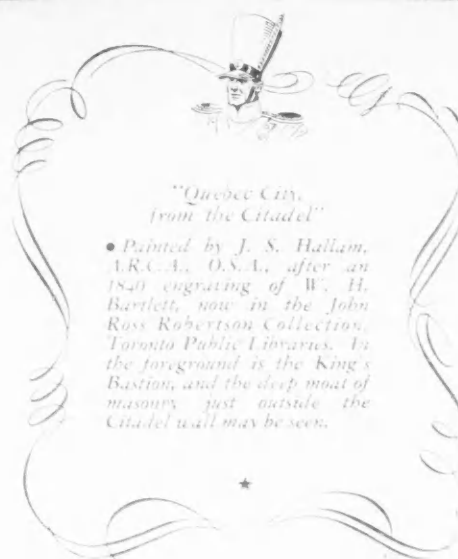 "Quebec City,
from the Citadel"
• Painted by J. S. Hallam,
A.R.C.A., O.S.A., after an
1840 engraving of W. H.
Bartlett, now in the John
Ross Robertson Collection,
Toronto Public Libraries. In
the foreground is the King's
Bastion, and the deep moat of
masonry just outside the
Citadel wall may be seen.